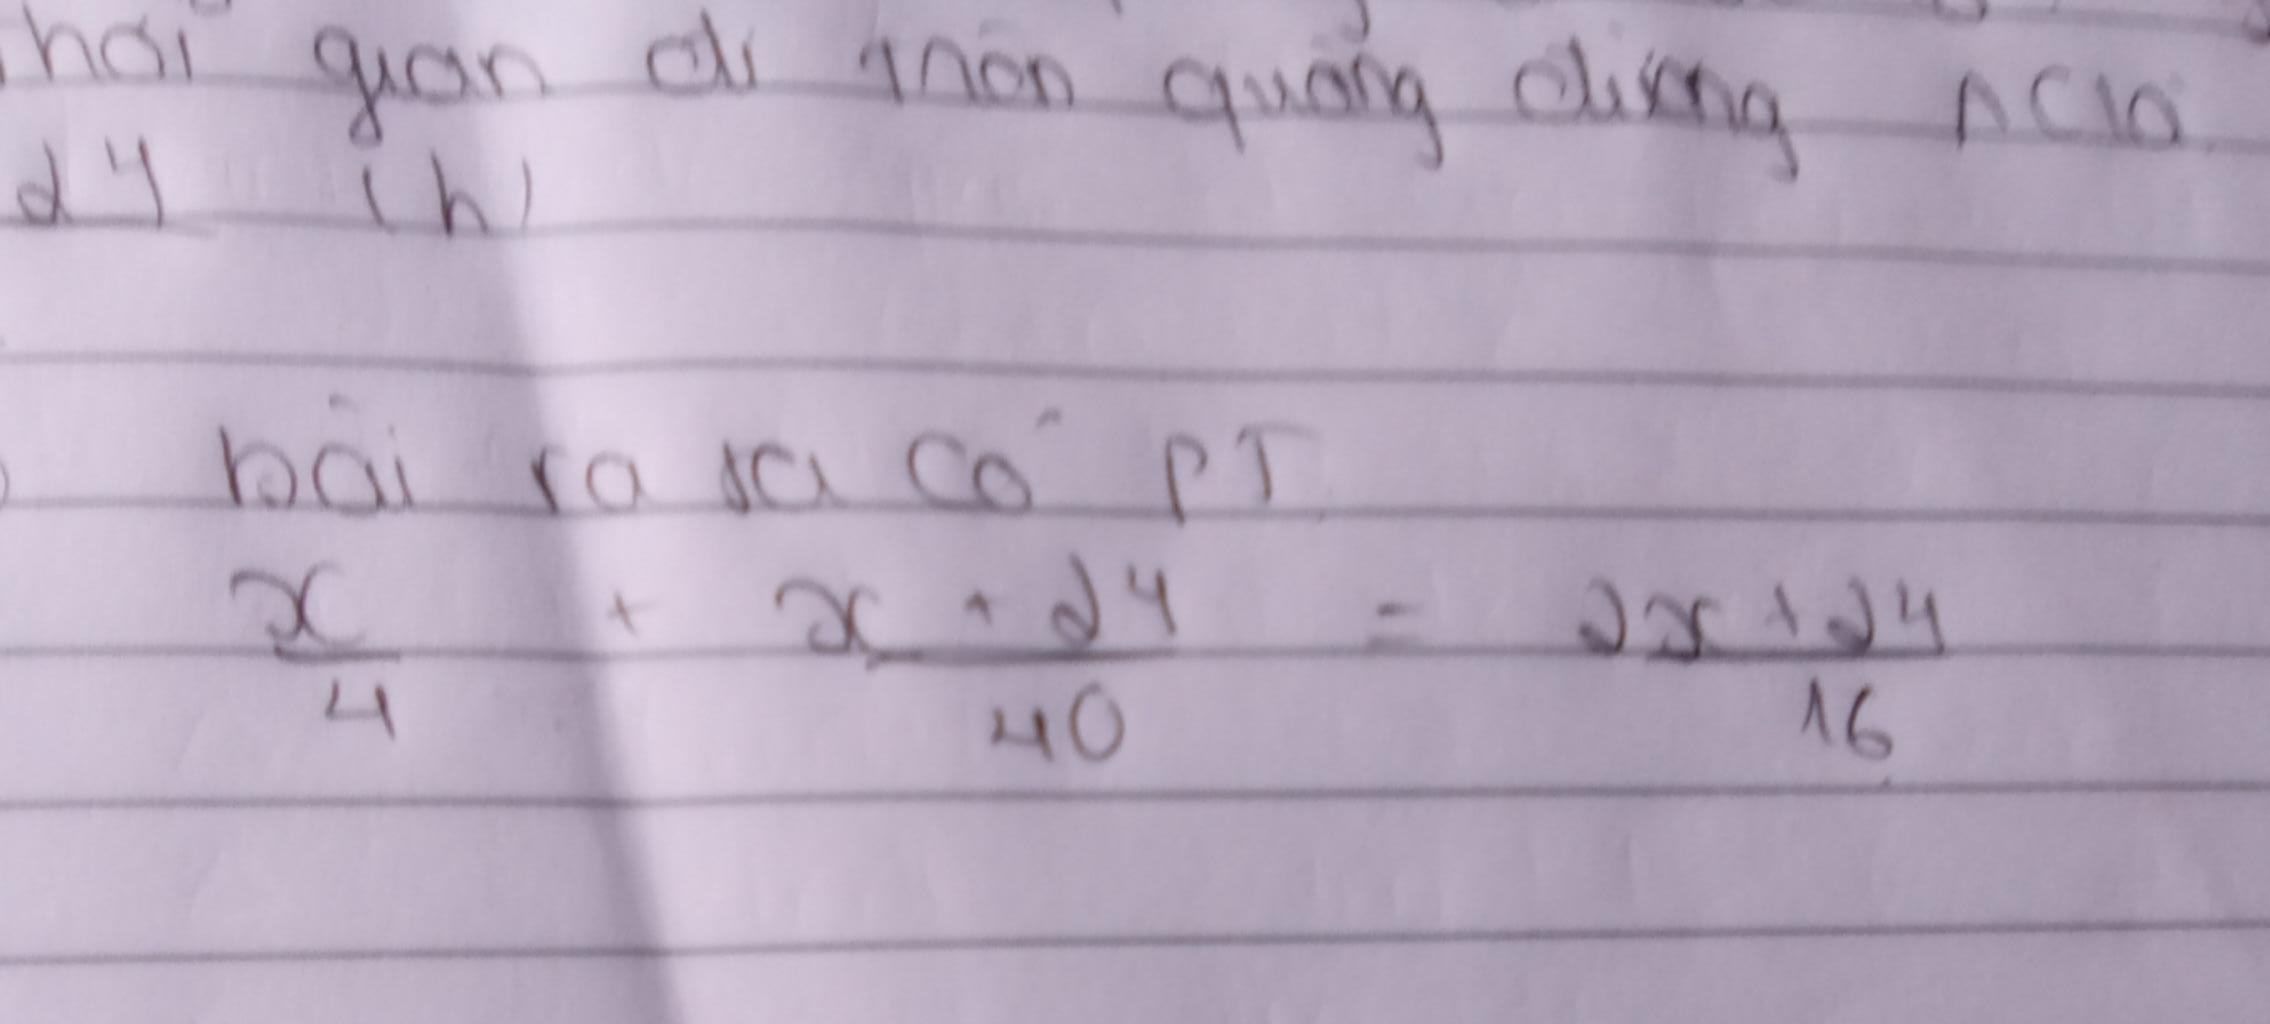 hời gian đi trên quãng đường AC là
24 (h)
bài ra ta có PT
x/4 + x + 24/40 = 2x + 24/16